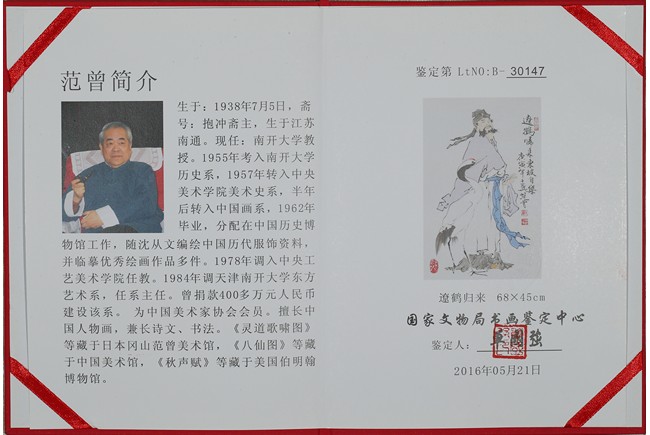 范曾简介
生于：1938年7月5日，斋
号：抱冲斋主，生于江苏
南通。现任：南开大学教
授。1955年考入南开大学
历史系，1957年转入中央
美术学院美术史系，半年
后转入中国画系，1962年
毕业，分配在中国历史博
物馆工作，随沈从文编绘中国历代服饰资料，
并临摹优秀绘画作品多件。1978年调入中央工
艺美术学院任教。1984年调天津南开大学东方
艺术系，任系主任。曾捐款400多万元人民币
建设该系。 为中国美术家协会会员。擅长中
国人物画，兼长诗文、书法。《灵道歌啸图》
等藏于日本冈山范曾美术馆，《八仙图》等藏
于中国美术馆，《秋声赋》等藏于美国伯明翰
博物馆。
鉴定第 LtNO:B- 30147
辽鹤归来 68×45cm
国家文物局书画鉴定中心
鉴定人：
2016年05月21日